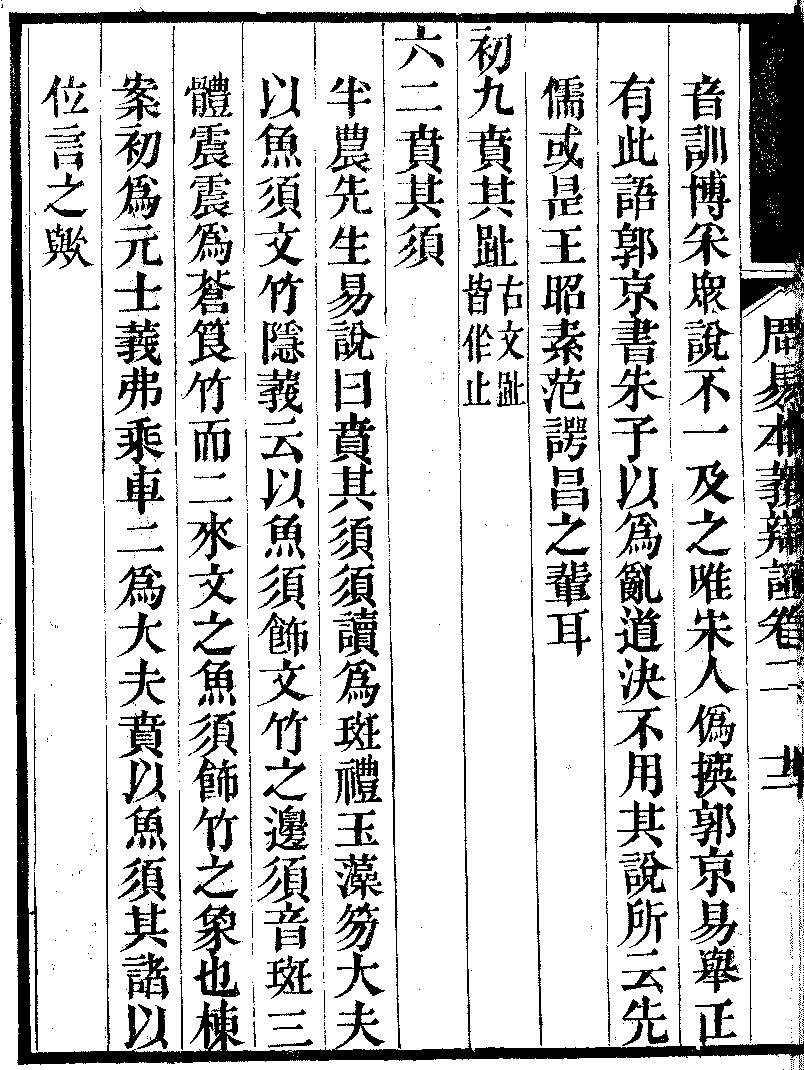 周易本義辯證卷二 十二
音訓博釆衆說不一及之唯宋人僞撰郭京易舉正
有此語郭京書朱子以爲亂道決不用其說所云先
儒或是王昭素范諤昌之輩耳
初九賁其趾古文趾皆作止
六二賁其須
半農先生易說曰賁其須須讀爲斑禮玉藻笏大夫
以魚須文竹隱義云以魚須飾文竹之邊須音斑三
體震震爲蒼筤竹而二來文之魚須飾竹之象也棟
案初爲元士義弗乘車二爲大夫賁以魚須其諸以
位言之歟